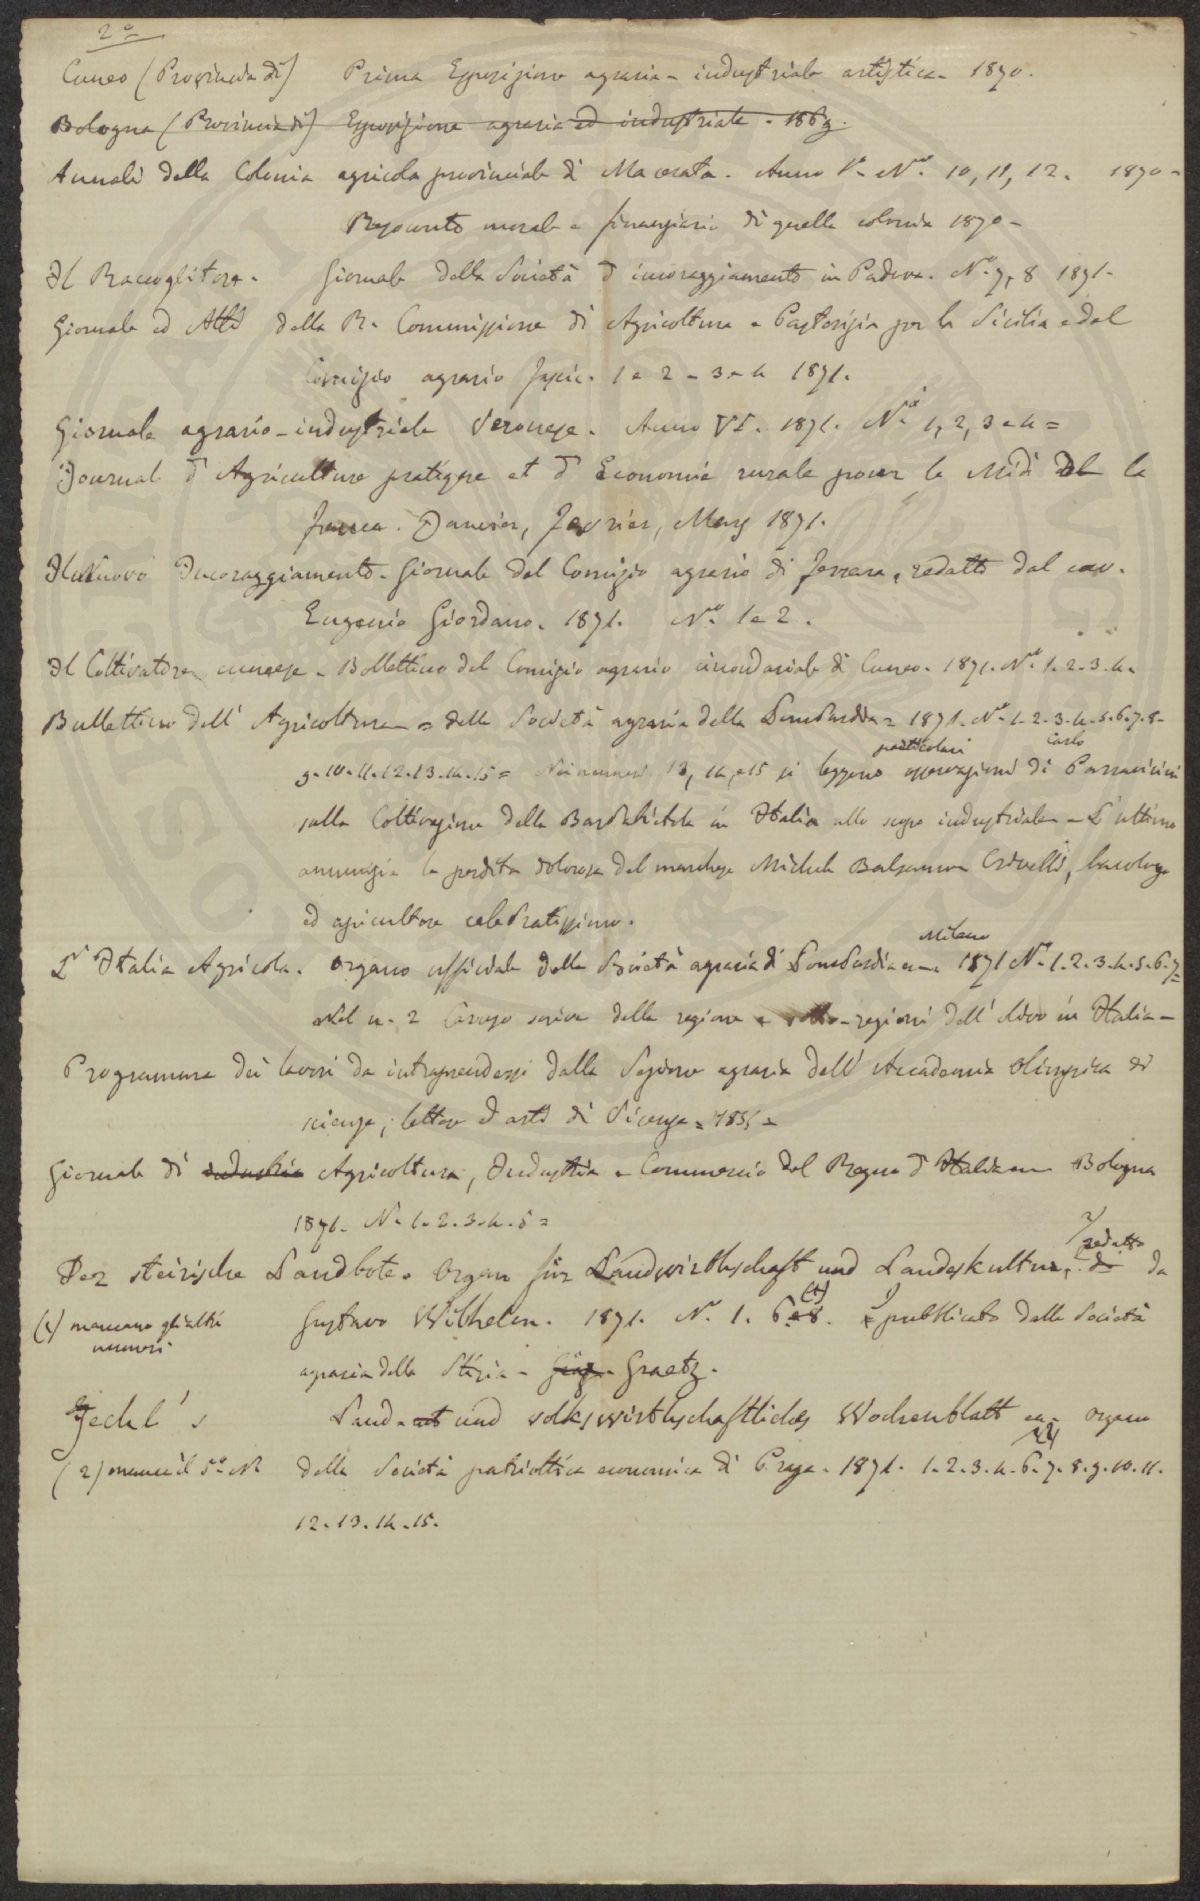 2°
Cuneo (Provincia di) Prima Esposizione agraria-industriale artistica - 1870.
Bologna (Provincia di) Esposizione agraria ed industriale - 1869.
Annali della Colonia agricola provinciale di Macerata. Anno V° N.° 10, 11, 12. 1870 -
Resoconto morale e finanziario di quella colonia 1870 -
Il Raccoglitore. Giornale della Società d'incoraggiamento in Padova. N.° 7, 8 1871.
Giornale ed Atti della R. Commissione di Agricoltura e Pastorizia per la Sicilia e del
Comizio agrario fascic. 1 e 2 - 3 e 4 1871.
Giornale agrario-industriale Veronese. Anno VI. 1871. N.° 1, 2, 3 e 4 =
Journal d'Agriculture pratique et d'Economie rurale pour le Midi de la
France. Janvier, Fevrier, Mars 1871.
Il Nuovo Incoraggiamento. Giornale del Comizio agrario di Ferrara, redatto dal cav.
Eugenio Giordano. 1871. N.° 1 e 2.
Il Coltivatore cuneese - Bollettino del Comizio agrario circondariale di Cuneo. 1871. N.° 1.2.3.4.
Bullettino dell'Agricoltura = della Società agraria della Lombardia = 1871. N.° 1.2.3.4.5.6.7.8.
particolari Carlo
9.10.11.12.13.14.15 = Nei numeri 13, 14, e 15 si leggono osservazioni di Parravicini
sulla Coltivazione della Barbabietola in Italia allo scopo industriale - L'ultimo
annunzia la perdita dolorosa del marchese Michele Balsamo Crivelli, bacologo
ed apicultore celebratissimo.
Milano
L'Italia Agricola. Organo ufficiale della Società agraria di Lombardia 1871 N.° 1.2.3.4.5.6.7=
Nel n. 2 Caruso scrive della regione e sotto-regioni dell'olivo in Italia -
Programma dei lavori da intraprendersi dalla Sezione agraria dell'Accademia Olimpica di
scienze, lettere ed arti di Vicenza =
Giornale di industria Agricoltura, Industria e Commercio del Regno d'Italia Bologna
1871. N. 1.2.3.4.5 =
redatto
Der steirische Landbote. Organ für Landwirthschaft und Landeskultur, di da
(1)
Gustavo Wilhelm. 1871. N.° 1. 6.e 8. pubblicato dalla Società
(1) mancano gli altri
numeri
agraria della Stiria - Graetz.
Jechl's Land- und volkswirthschaftliches Wochenblatt organo
(2)
(2) manca il 5° N.° della Società patriottica economica di Praga. 1871. 1.2.3.4.6.7.8.9.10.11.
12.13.14.15.